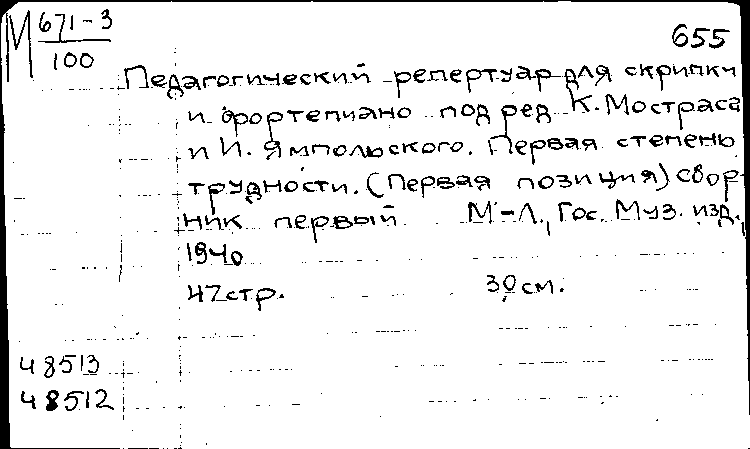 М 671-3
100
655
Педагогический репертуар для скрипки
и фортепиано под ред К. Мостраса
и И. Ямпольского. Первая степень
трудности. (Первая позиция) сбор-
ник первый М-Л., Гос. Муз. изд.,
1940
47 стр. 30 см.
48513
48512